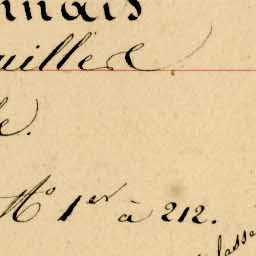 nnais
uillere
e.
N° 1er à 212.
lasse